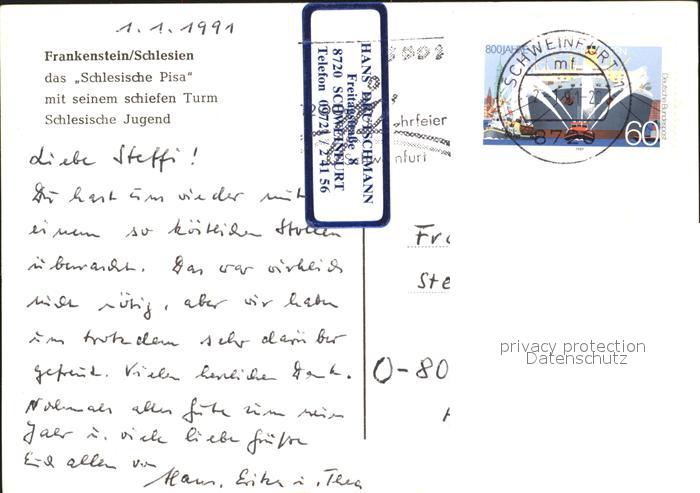 1.1.1991
Frankenstein/Schlesien
das „Schlesische Pisa“
mit seinem schiefen Turm
Schlesische Jugend
Liebe Steffi!
Du hast uns wieder mit
einem so köstlichen Stollen
überrascht. Das war wirklich
nicht nötig, aber wir haben
uns trotzdem sehr darüber
gefreut. Vielen herzlichen Dank.
Nochmals alles Gute zum neuen
Jahr u. viele liebe Grüße
Euch allen von
Hans, Erika u. Thea
HANS DEUTSCHMANN
Freitagstraße 8
8720 SCHWEINFURT
Telefon 09721/2 41 56
hrfeier
nfurt
800 JAHRE
SCHWEINFURT 1
mf
8720
60
Deutsche Bundespost
Fr
Ste
O-80
privacy protection
Datenschutz